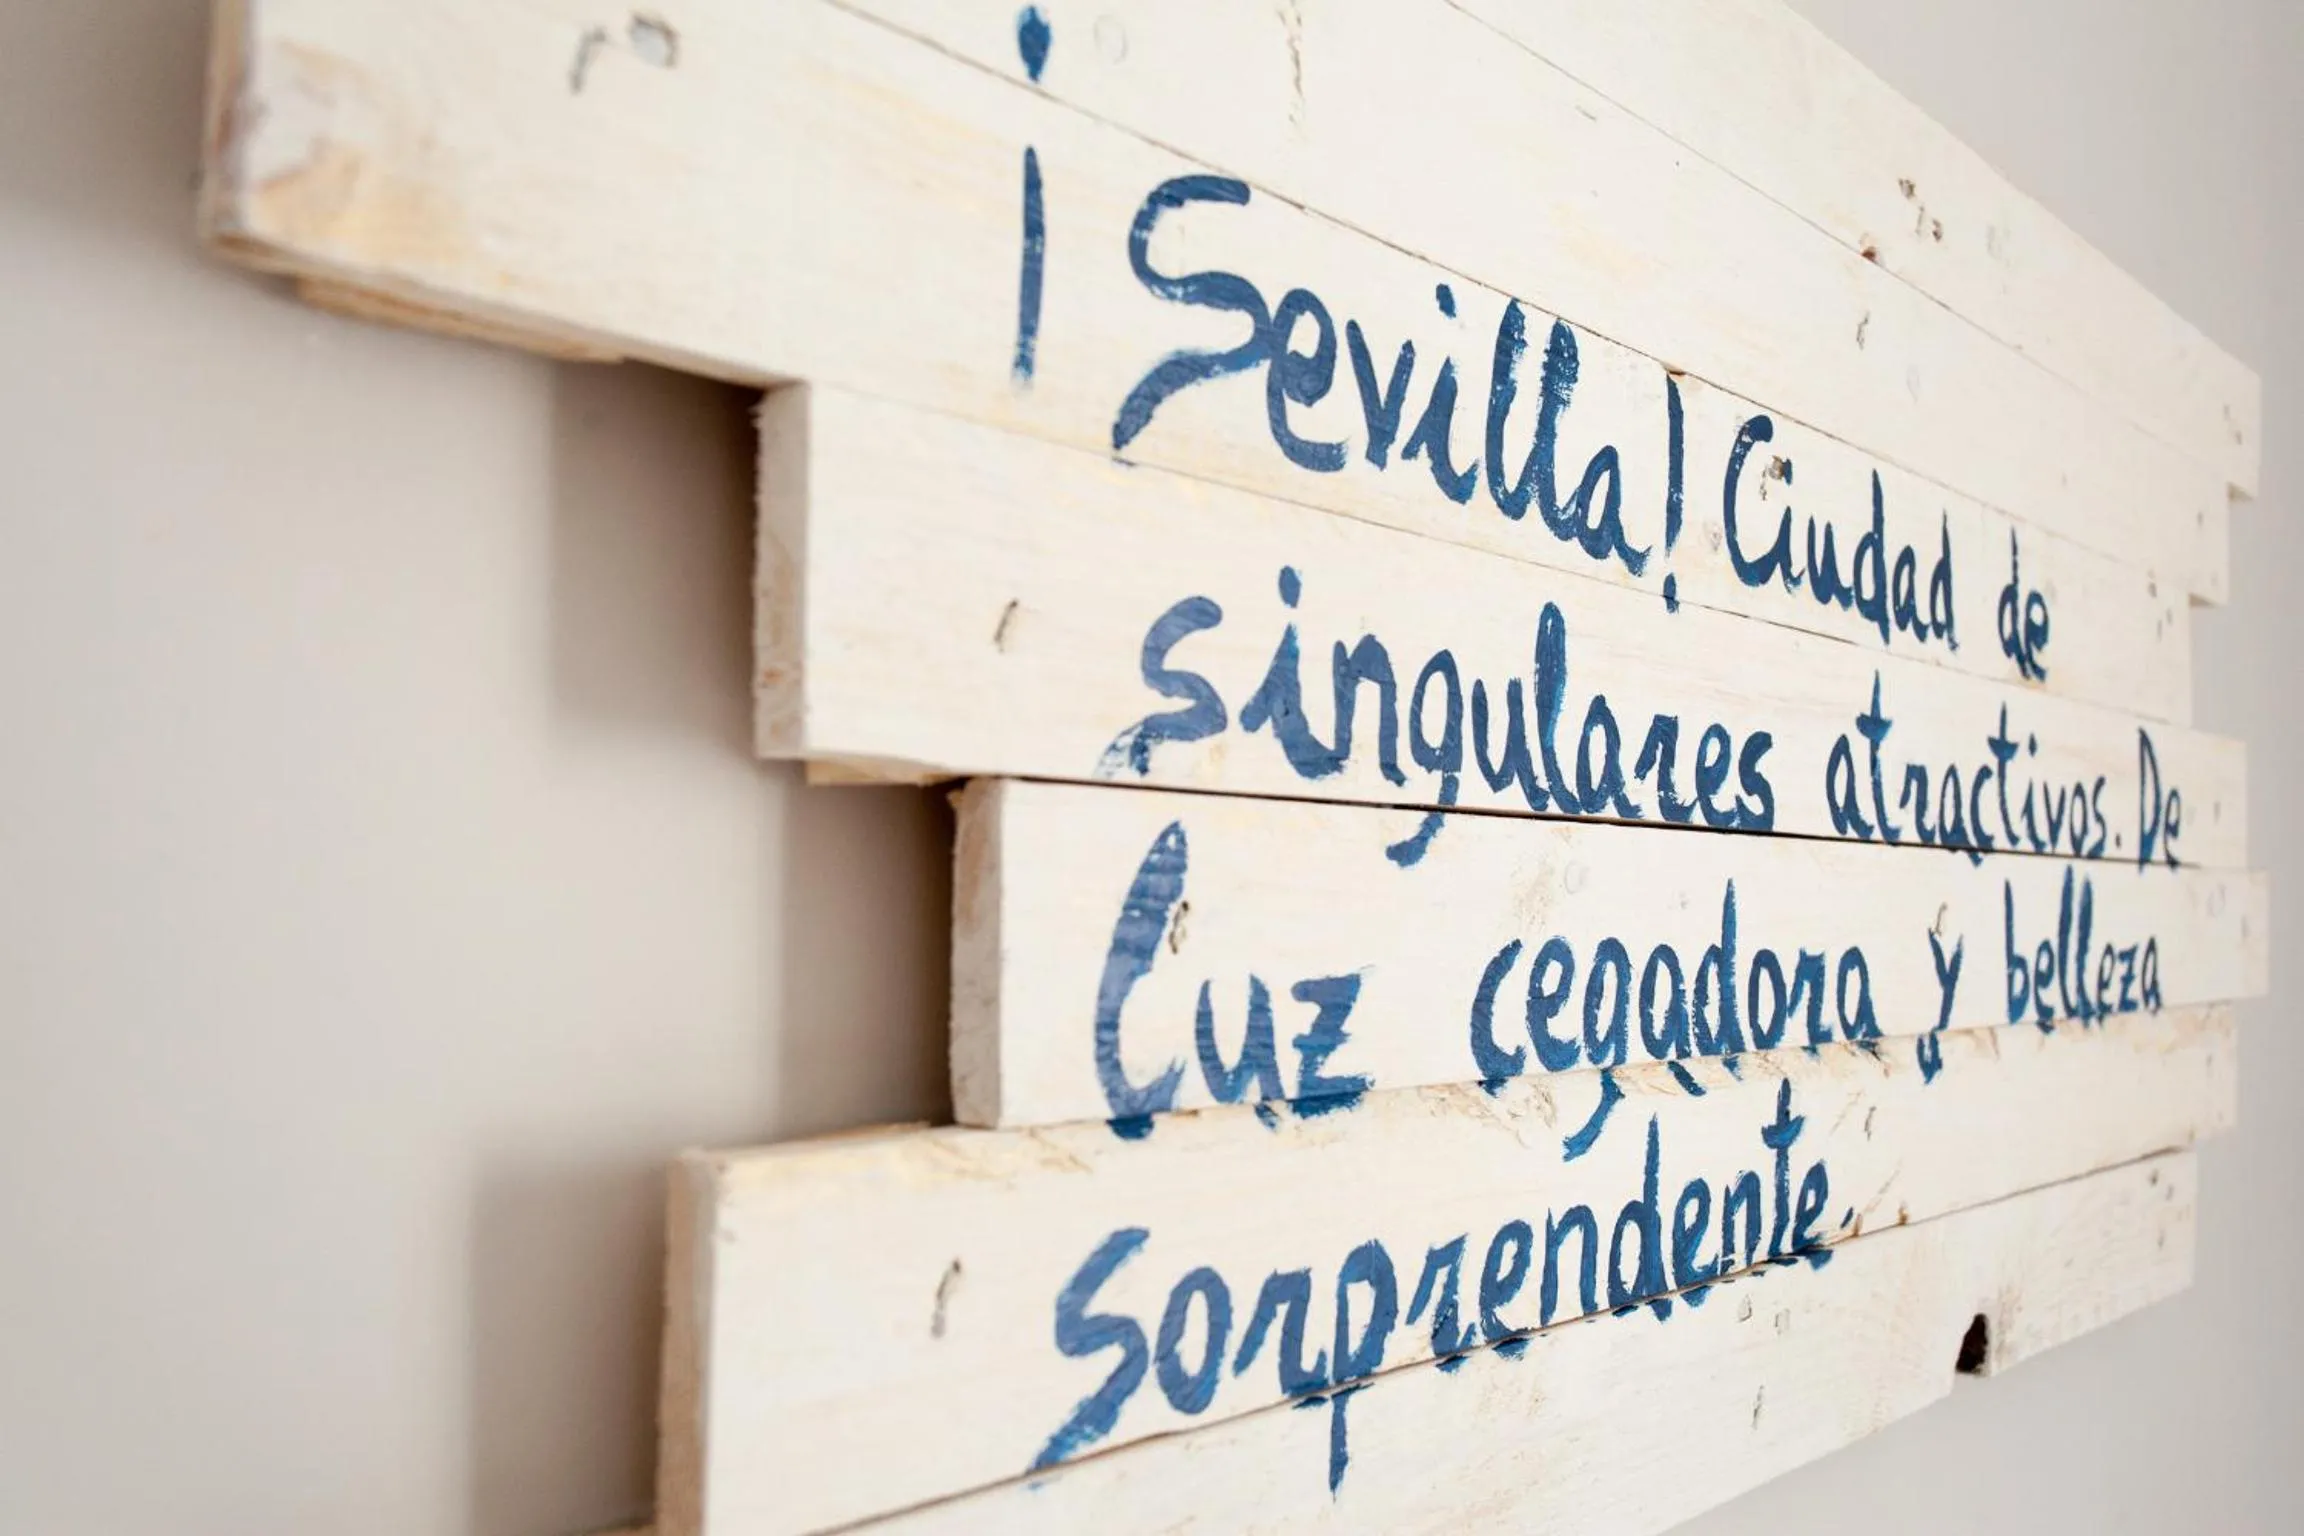 ¡Sevilla! Ciudad de
singulares atractivos. De
Luz cegadora y belleza
sorprendente.